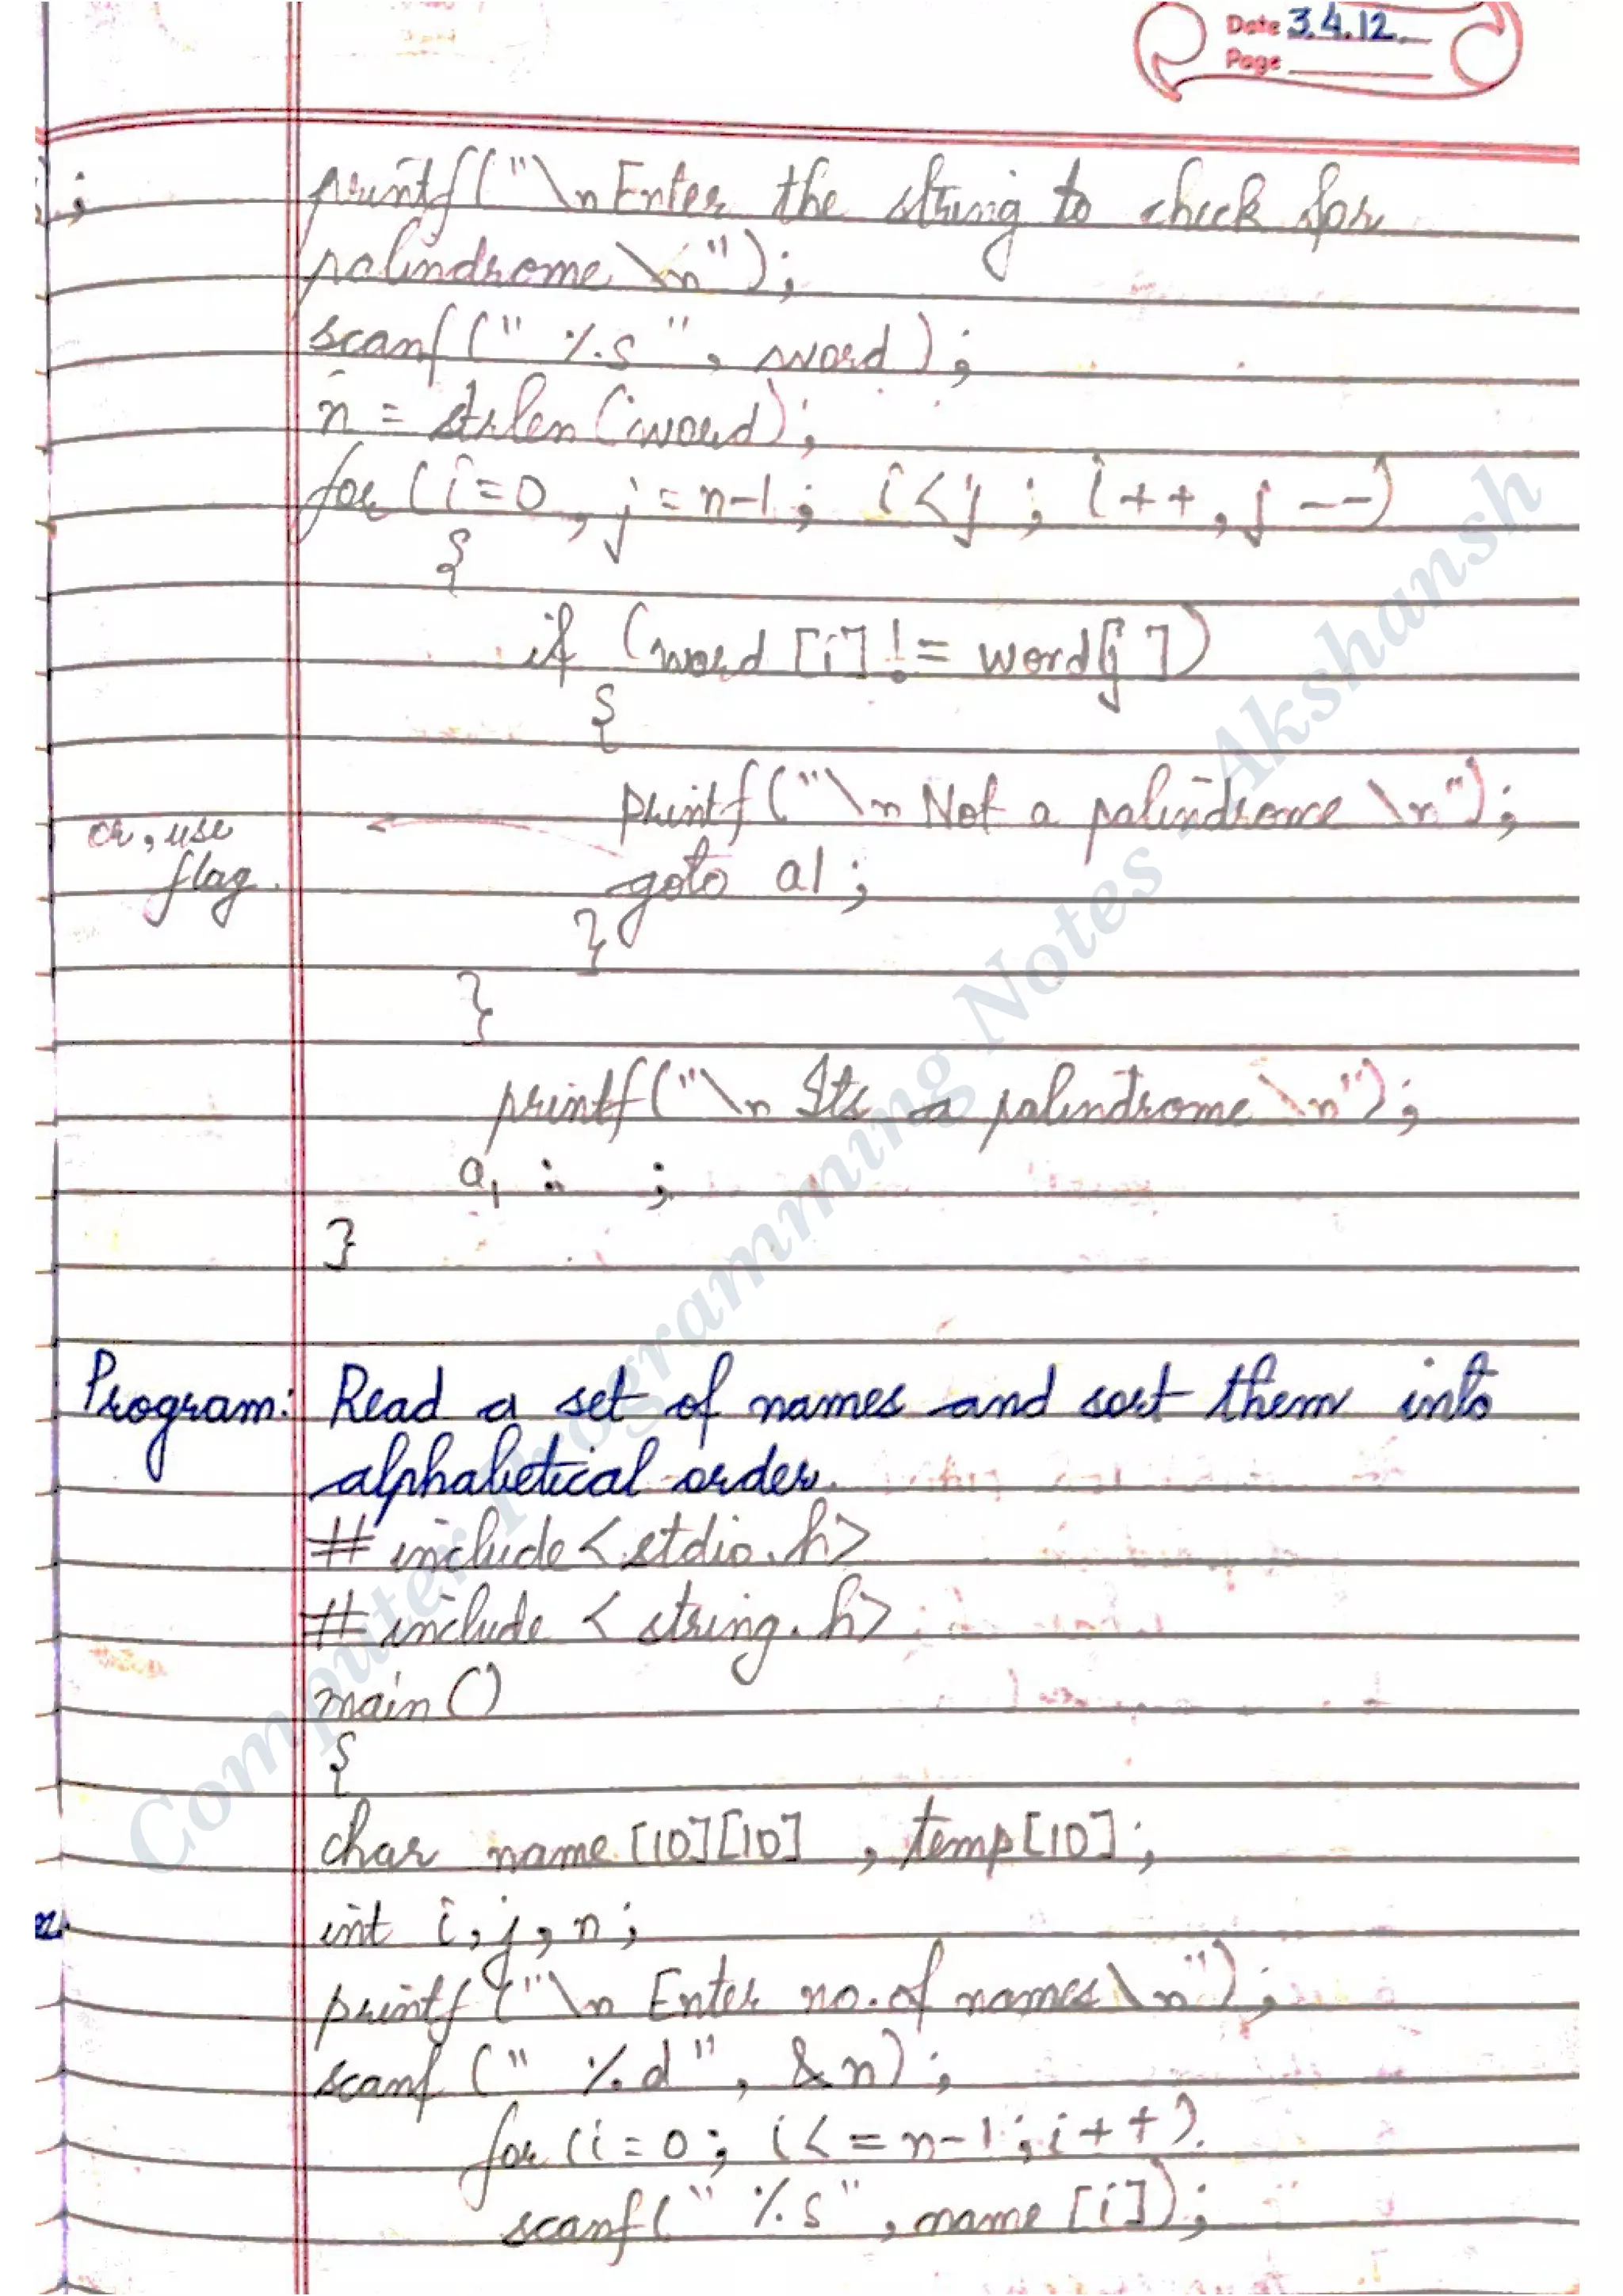 Date 3.4.12
Page
;
printf("\n Enter the string to check for
palindrome \n");
scanf (" %s ", word);
n = strlen(word);
for (i=0, j=n-1; i<j; i++, j--)
{
if (word [i] != word[j])
{
printf("\n Not a palindrome \n");
or, use
flag.
goto a1;
}
}
printf("\n Its a palindrome \n");
a1 : ;
}
Program: Read a set of names and sort them into
alphabetical order.
# include < stdio.h>
# include < string.h>
main ()
{
char name [10][10] , temp[10];
int i, j, n;
printf ("\n Enter no. of names \n");
scanf (" %d", &n);
for (i=0; i<=n-1; i++)
scanf(" %s", name [i]);
Computer Programming Notes Akshansh